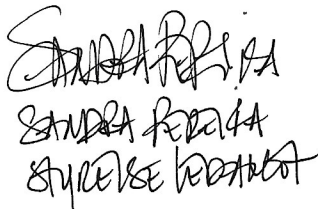 SANDRA PEREIRA
SANDRA PEREIRA
STYRELSELEDAMOT